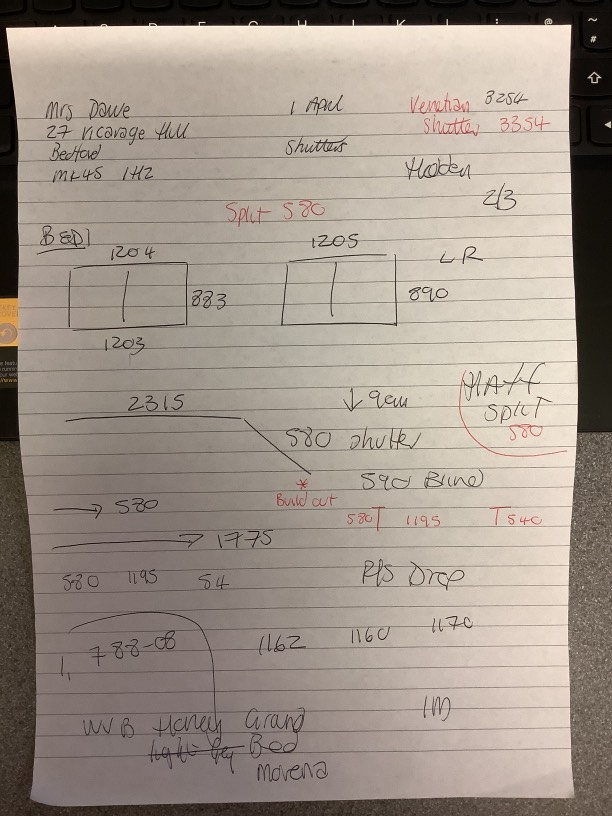 Mrs Dawe
1 April
Venetian 3254
27 Vicarage Hill
Shutter 3354
Bedford
Shutters
MK45 1HZ
Hidden
2/3
Split 580
BED1
1204
1205
L R
883
890
1203
2315
↓ 9cm
HALF
SPLIT
580
580 shutter
590 Blind
*
Build out
→ 580
580T 1195 T540
→ 1775
580 1195 54
P/S Drop
1, 788-08
1162 1160 1170
1M
Honey Grand
Bed